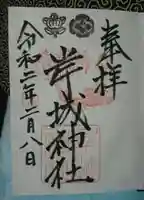 奉拝
岸城神社
令和二年二月八日